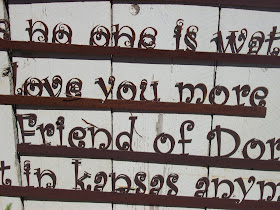 no one is wat
Love you more
Friend of Dor
t in kansas anym